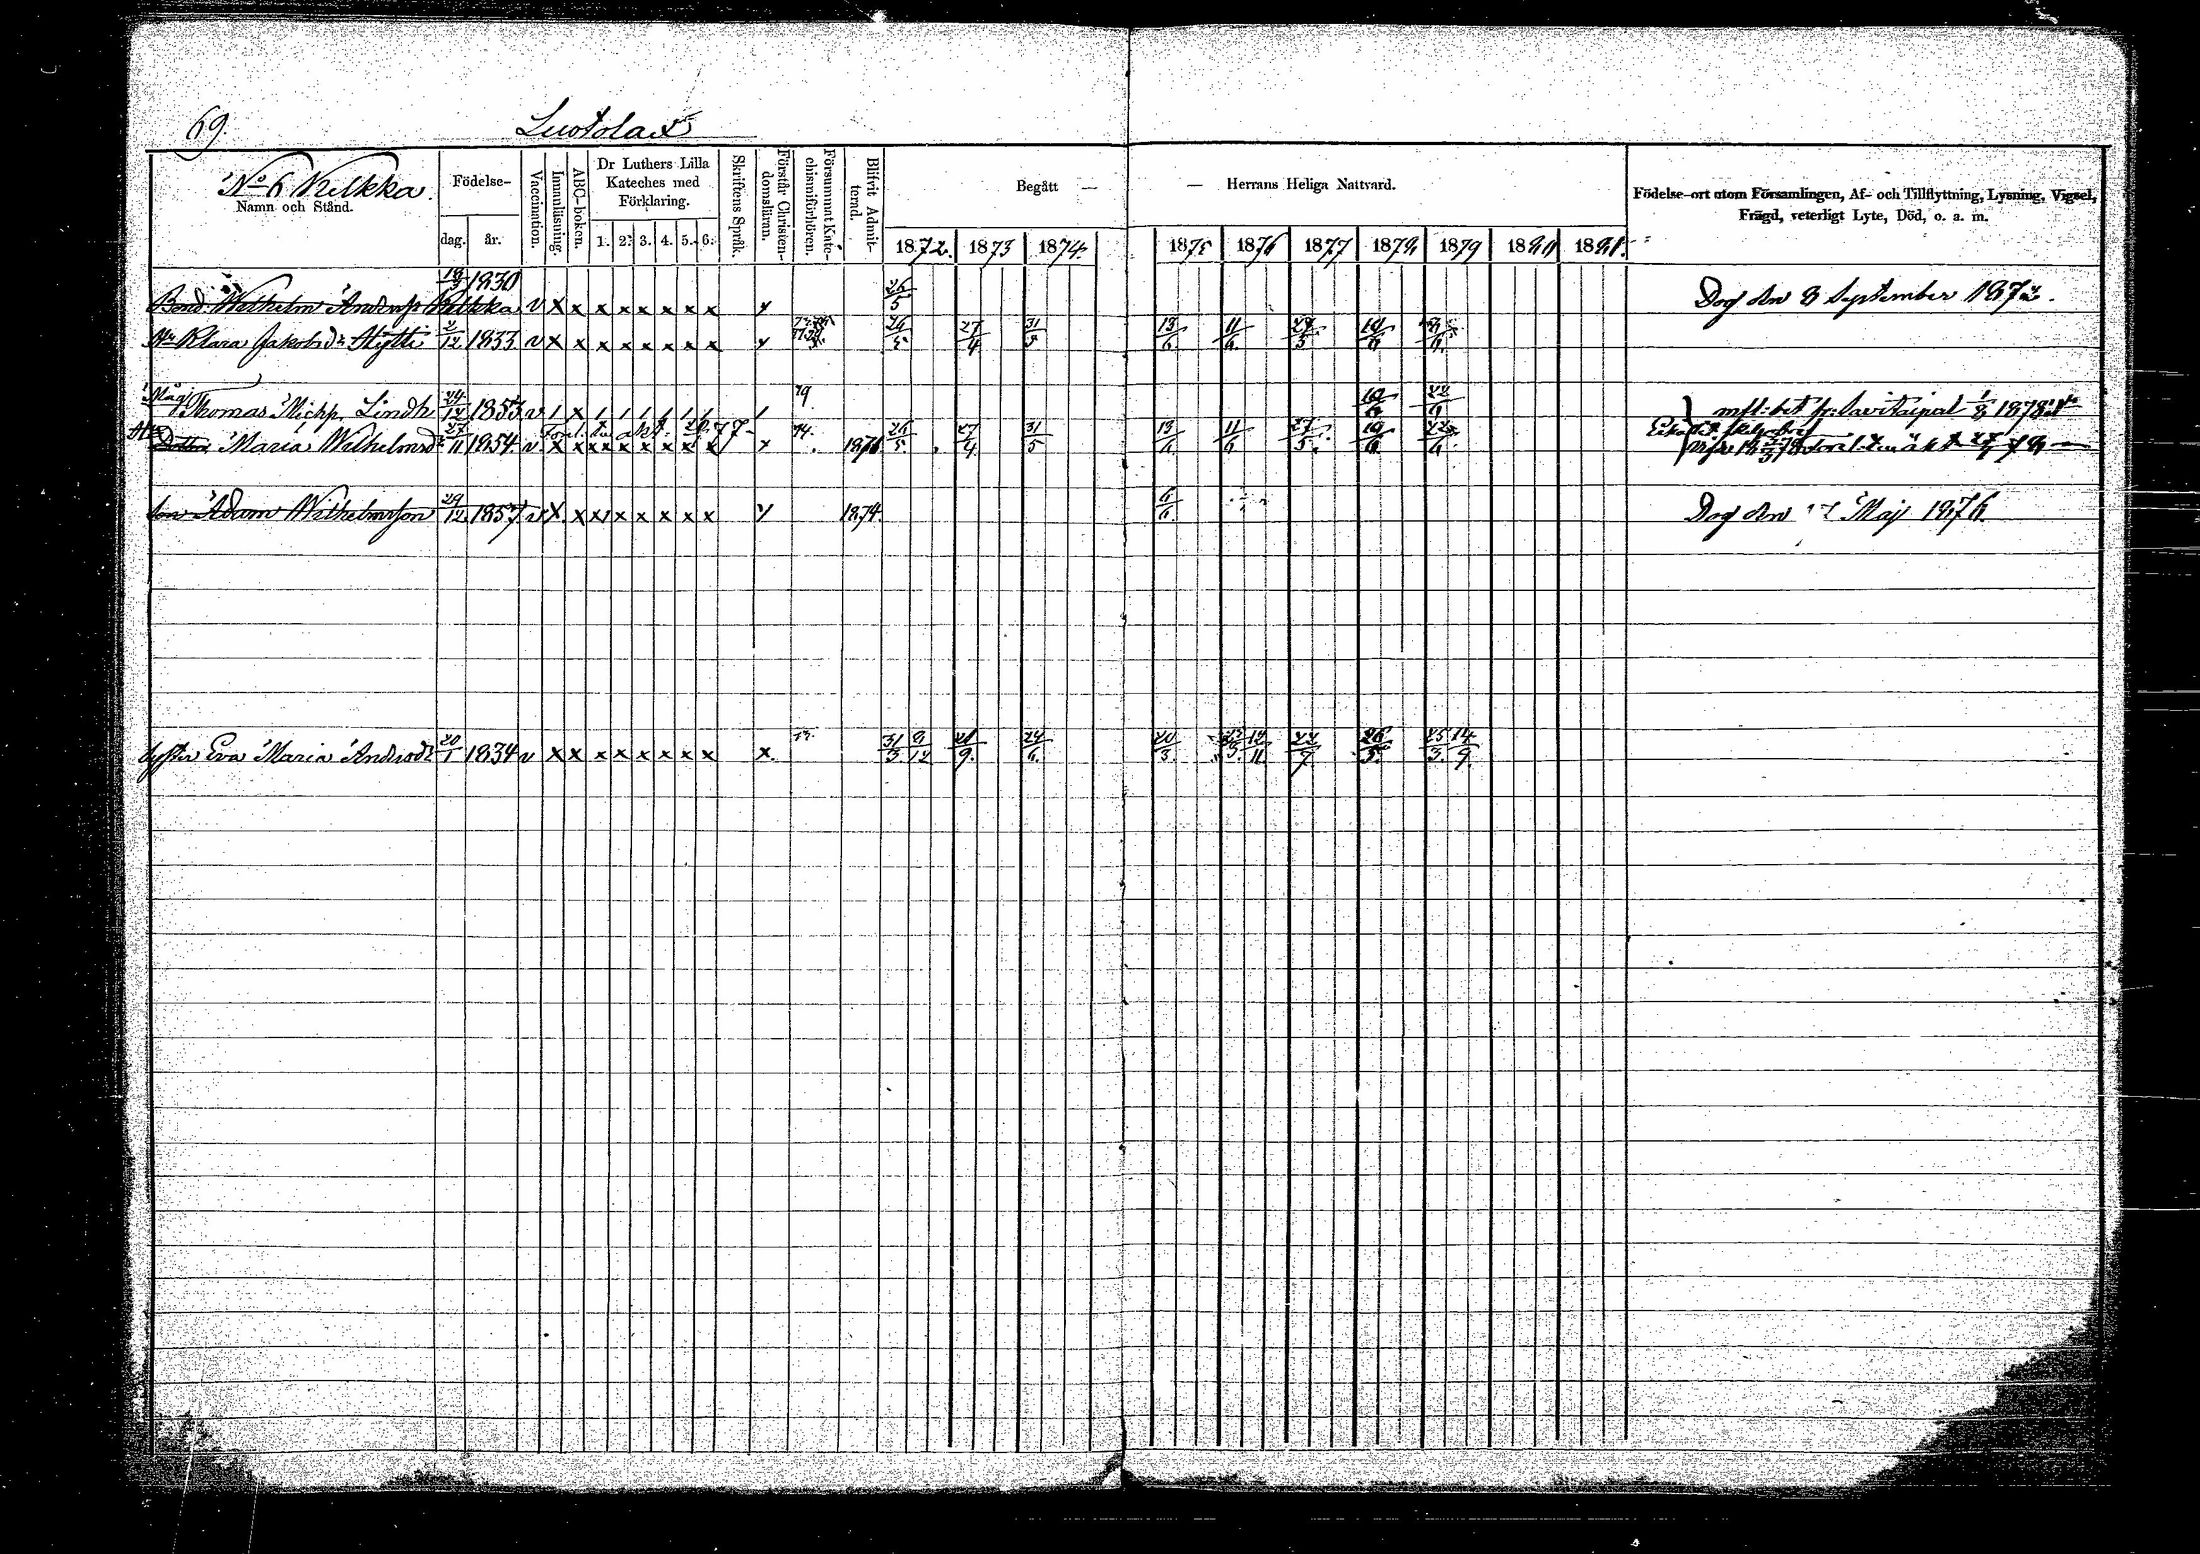 69.
Luotolax
No 6 Kilkka.
Namn och Stånd.
Födelse-
dag. år.
Vaccination.
Innanläsning.
ABC-boken.
Dr Luthers Lilla Kateches med Förklaring.
1. 2. 3. 4. 5. 6.
Skriftens Språk.
Förstår Christendomsläran.
Försummat Katechismiförhören.
Blifvit Admitterad.
Begått —
— Herrans Heliga Nattvard.
1872. 1873 1874. 1875 1876 1877 1878 1879 1880 1881.
Födelse-ort utom Församlingen, Af- och Tillflyttning, Lysning, Vigsel,
Frägd, veterligt Lyte, Död, o. a. m.
Bond. Wilhelm Andersson Kilkka 18/3 1830 v x x x x x x x x x 26/5 Dog den 8 September 1872.
Klara Jakobsdr Hytti 2/12 1833 v x x x x x x x x x 26/5 27/4 31/5 13/6 11/6 27/5 19/6
Måg Thomas Michp. Lindh 24/12 1853 v 79. 19/6 22/6 bet. fr. Savitaipal 1/8 1878
Dotter Maria Wilhelmsdr 27/11 1854. v. x x x x x x x x x 74. 1871 26/5. 27/4. 31/5 13/6. 11/6 27/5. 19/6 22/6
son Adam Wilhelmsson 29/12 1857 v x x x x x x x x x 1874. 6/6. Dog den Maj 1876.
Syster Eva Maria Andersdr 20/1 1834 v x x x x x x x x x. 73. 31/3 9/12 21/9. 24/6. 20/3. 12/11 22/9 26/5. 25/3. 14/9.